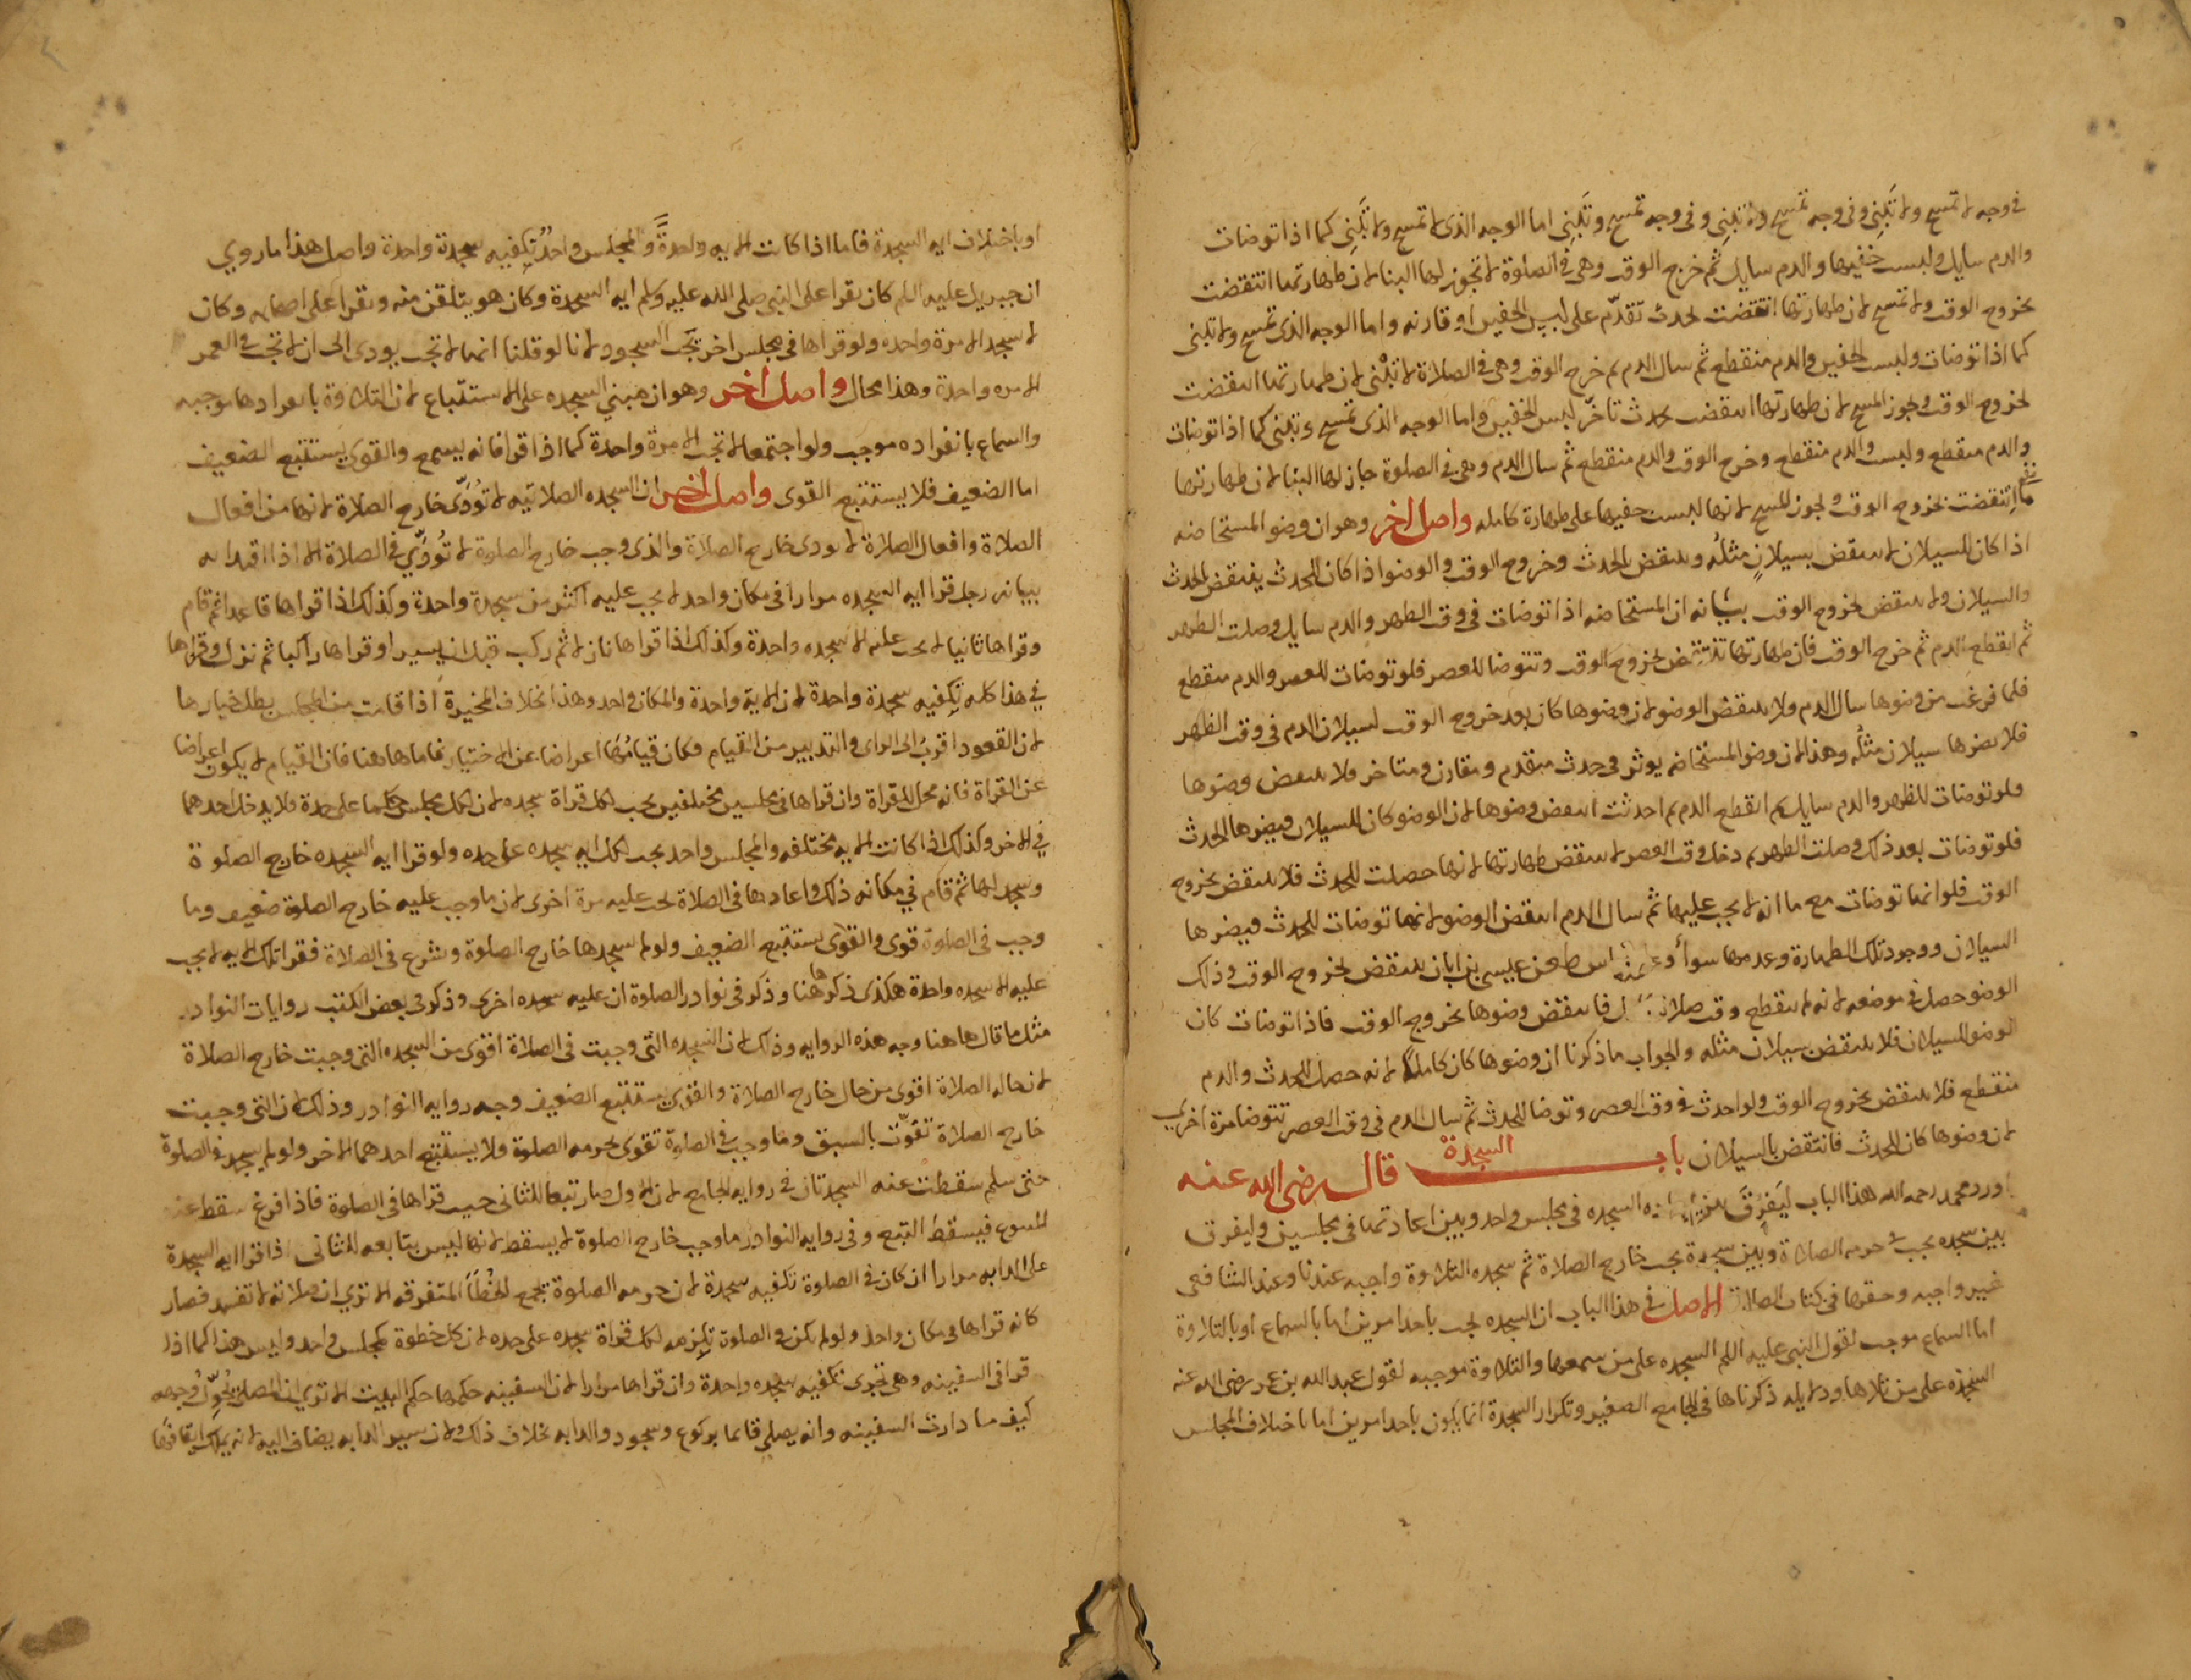 في وجه لا تمسح ولا تبني وفي وجه تمسح ولا تبني وفي وجه تمسح وتبني اما الوجه الذي لا تمسح ولا تبني كما اذا توضات
والدم سايل ولبست خفيها والدم سايل ثم خرج الوقت وهي في الصلوة لا تجوز لها البنا لان طهارتها انتقضت
بخروج الوقت ولا تمسح لان طهارتها انتقضت لحدث تقدم على لبس الخفين او قارنه واما الوجه الذي تمسح ولا تبني
كما اذا توضات ولبست الخفين والدم منقطع ثم سال الدم ثم خرج الوقت وهي في الصلاة لا تبني لان طهارتها انتقضت
لخروج الوقت ويجوز المسح لان طهارتها انتقضت بحدث تاخر لبس الخفين واما الوجه الذي تمسح وتبني كما اذا توضات
والدم منقطع ولبست والدم منقطع وخرج الوقت والدم منقطع ثم سال الدم وهي في الصلوة جاز لها البنا لان طهارتها
ما انتقضت بخروج الوقت ويجوز المسح لانها لبست خفيها على طهارة كاملة واصل اخر وهو ان وضو المستحاضه
اذا كان للسيلان لا ينتقض بسيلان مثله وينتقض بالحدث وخروج الوقت والوضو اذا كان للحدث ينتقض بالحدث
والسيلان ولا ينتقض بخروج الوقت بيانه ان المستحاضه اذا توضات في وقت الظهر والدم سايل وصلت الظهر
ثم انقطع الدم ثم خرج الوقت فان طهارتها تنتقض بخروج الوقت وتتوضا للعصر فلو توضات للعصر والدم منقطع
فلما فرغت من وضوها سال الدم ولا ينتقض الوضو لان وضوها كان بعد خروج الوقت لسيلان الدم في وقت الظهر
فلا يضرها سيلان مثله وهذا لان وضو المستحاضه يوثر في حدث متقدم ومقارن ومتاخر فلا ينتقض وضوها
ولو توضات للظهر والدم سايل ثم انقطع الدم ثم احدثت انتقض وضوها لان الوضو كان للسيلان فيضرها الحدث
فلو توضات بعد ذلك وصلت الظهر ثم دخل وقت العصر لا ينتقض طهارتها لانها حصلت للحدث فلا ينتقض بخروج
الوقت فلو انها توضات مع ما انه لا يجب عليها ثم سال الدم انتقض الوضو لانها توضات للحدث فيضرها
السيلان ووجود تلك الطهارة وعدمها سوا طعن عيسى بن ابان ينتقض بخروج الوقت وذلك
الوضو حصل في موضعه لانه لم ينقطع وقت صلاة فانتقض وضوها بخروج الوقت فاذا توضات كان
الوضو للسيلان فلا ينتقض بسيلان مثله والجواب ما ذكرنا ان وضوها كان كاملا لانه حصل للحدث والدم
منقطع فلا ينتقض بخروج الوقت ولو احدث في وقت العصر وتوضا للحدث ثم سال الدم في وقت العصر تتوضا مرة اخري
لان وضوها كان للحدث فانتقض بالسيلان باب السجدة قال رضي الله عنه
اورد محمد رحمه الله هذا الباب ليفرق بين السجده في مجلس واحد وبين اعادتها في مجلسين وليفرق
بين سجده يجب في حرمه الصلاة وبين سجدة يجب خارج الصلاة ثم سجده التلاوة واجبه عندنا وعند الشافعي
غير واجبه وحقها في كتاب الصلاة الاصل في هذا الباب ان السجده تجب باحد امرين اما بالسماع او بالتلاوة
اما السماع موجب لقول النبي عليه السلم السجده على من سمعها والتلاوة موجبه لقول عبد الله بن عمر رضي الله عنه
السجده على من تلاها ودلايله ذكرناها في الجامع الصغير وتكرار السجدة انما يكون باحد امرين اما باختلاف المجلس
او باختلاف ايه السجدة فاما اذا كانت الايه واحدة والمجلس واحد تكفيه سجدة واحدة واصل هذا ما روي
ان جبريل عليه السلم كان يقرا على النبي صلى الله عليه وسلم ايه السجدة وكان هو يتلقن منه ويقرا على اصحابه وكان
لا يسجد الا مرة واحده ولو قراها في مجلس اخر تجب السجود لانا لو قلنا انها لا تجب يودي الى ان لا تجب في العمر
الا مره واحدة وهذا محال واصل اخر وهو ان مبني السجده على الاستتباع لان التلاوة بانفرادها موجبه
والسماع بانفراده موجب ولو اجتمعا لا تجب الا مرة واحدة كما اذا قرا فانه يسمع والقوي يستتبع الضعيف
اما الضعيف فلا يستتبع القوى واصل اخر ان السجده الصلاتيه لا تودى خارج الصلاة لانها من افعال
الصلاة وافعال الصلاة لا تودى خارج الصلاة والذي وجب خارج الصلوة لا تودي في الصلاة الا اذا اقتدا به
بيانه رجل قرا ايه السجده مرارا في مكان واحد لا يجب عليه اكثر من سجدة واحدة وكذلك اذا قراها قاعدا ثم قام
وقراها ثانيا لا يجب عليه الا سجده واحدة وكذلك اذا قراها نازلا ثم ركب قبل ان يسير او قراها راكبا ثم نزل وقراها
في هذا كله تكفيه سجدة واحدة لان الاية واحدة والمكان واحد وهذا بخلاف المخيرة اذا قامت من المجلس بطل خيارها
لان القعود اقرب الى الراي والتدبير من القيام فكان قيامها اعراضا عن الاختيار فاما هاهنا فان القيام لا يكون اعراضا
عن القراة فانه محل للقراة وان قراها في مجلسين مختلفين يجب لكل قراة سجده لان لكل مجلس حكما على حدة فلا يدخل احدهما
في الاخر وكذلك اذا كانت الايه مختلفه والمجلس واحد يجب لكل ايه سجده على حده ولو قرا ايه السجده خارج الصلوة
وسجد لها ثم قام في مكانه ذلك واعادها في الصلاة تجب عليه مرة اخرى لان ما وجب عليه خارج الصلوة ضعيف وما
وجب في الصلوة قوي والقوي يستتبع الضعيف ولو لم يسجدها خارج الصلوة وشرع في الصلاة فقرا تلك الايه لا يجب
عليه الا سجده واحدة هكذى ذكر هاهنا وذكر في نوادر الصلوة ان عليه سجده اخرى وذكر في بعض الكتب روايات النوادر
مثل ما قال هاهنا وجه هذه الروايه وذلك لان السجده التي وجبت في الصلاة اقوى من السجده التي وجبت خارج الصلاة
لان حاله الصلاة اقوى من حال خارج الصلاة والقوي يستتبع الضعيف وجه روايه النوادر وذلك لان التي وجبت
خارج الصلاة تقوت بالسبق وما وجب في الصلوة تقوى بحرمه الصلوة فلا يستتبع احدهما الاخر ولو لم يسجد في الصلوة
حتى سلم سقطت عنه السجدتان في روايه الجامع لان الاول صار تبعا للثاني حيث قراها في الصلوة فاذا فرغ سقط عنه
المتبوع فيسقط التبع وفي روايه النوادر ما وجب خارج الصلوة لا يسقط لانها ليس بتابعه للثاني اذا قرا ايه السجدة
على الدابه مرارا ان كان في الصلوة تكفيه سجدة لان حرمه الصلوة تجمع الخطا المتفرقه الا تري ان صلاته لا تفسد فصار
كانه قراها في مكان واحد ولو لم يكن في الصلوة تلزمه لكل قراة سجده على حده لان كل خطوة كمجلس واحد وليس هذا كما اذا
قرا في السفينه وهي تجري تكفيه سجده واحدة وان قراها مرارا لان السفينه حكمها حكم البيت الا تري ان المصلي يحول وجهه
كيف ما دارت السفينه وانه يصلي قايما بركوع وسجود والدابه بخلاف ذلك ولان سير الدابه يضاف اليه لانه يملك ايقافها